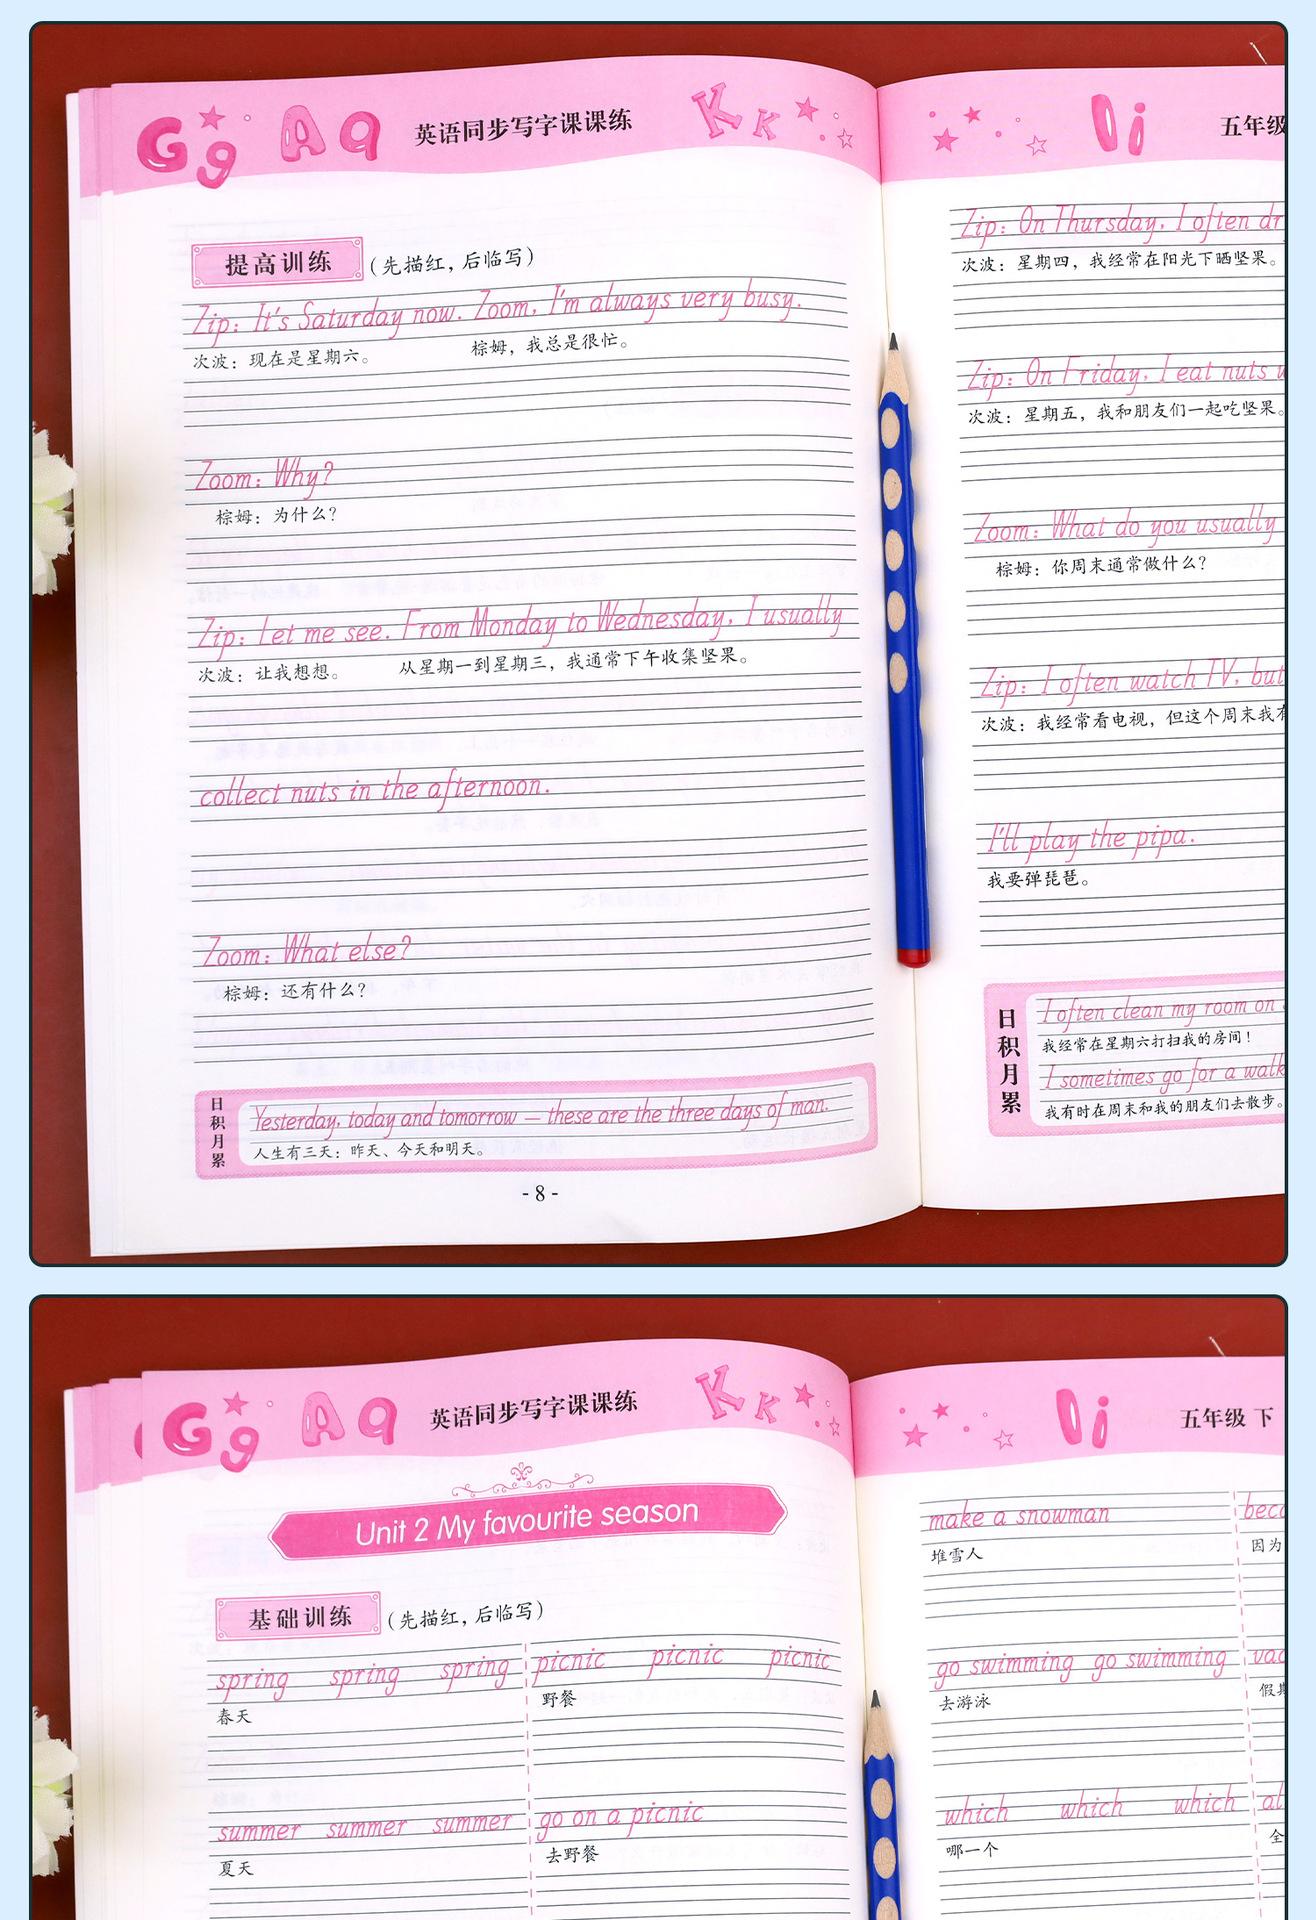 Gg Aa 英语同步写字课课练 Kk
提高训练 (先描红,后临写)
Zip: It's Saturday now. Zoom, I'm always very busy.
次波：现在是星期六。 棕姆，我总是很忙。
Zoom: Why?
棕姆：为什么？
Zip: Let me see. From Monday to Wednesday, I usually
次波：让我想想。 从星期一到星期三，我通常下午收集坚果。
collect nuts in the afternoon.
Zoom: What else?
棕姆：还有什么？
日积月累
Yesterday, today and tomorrow — these are the three days of man.
人生有三天：昨天、今天和明天。
- 8 -
Ii 五年级
Zip: On Thursday, I often
次波：星期四，我经常在阳光下晒坚果。
Zip: On Friday, I eat nuts
次波：星期五，我和朋友们一起吃坚果。
Zoom: What do you usually
棕姆：你周末通常做什么？
Zip: I often watch TV, but
次波：我经常看电视，但这个周末我有
I'll play the pipa.
我要弹琵琶。
日积月累
I often clean my room on
我经常在星期六打扫我的房间！
I sometimes go for a walk
我有时在周末和我的朋友们去散步。
Gg Aa 英语同步写字课课练 Kk
Unit 2 My favourite season
基础训练 (先描红,后临写)
spring spring spring picnic picnic picnic
春天 野餐
summer summer summer go on a picnic
夏天 去野餐
Ii 五年级 下
make a snowman
堆雪人 因为
go swimming go swimming
去游泳
which which which
哪一个